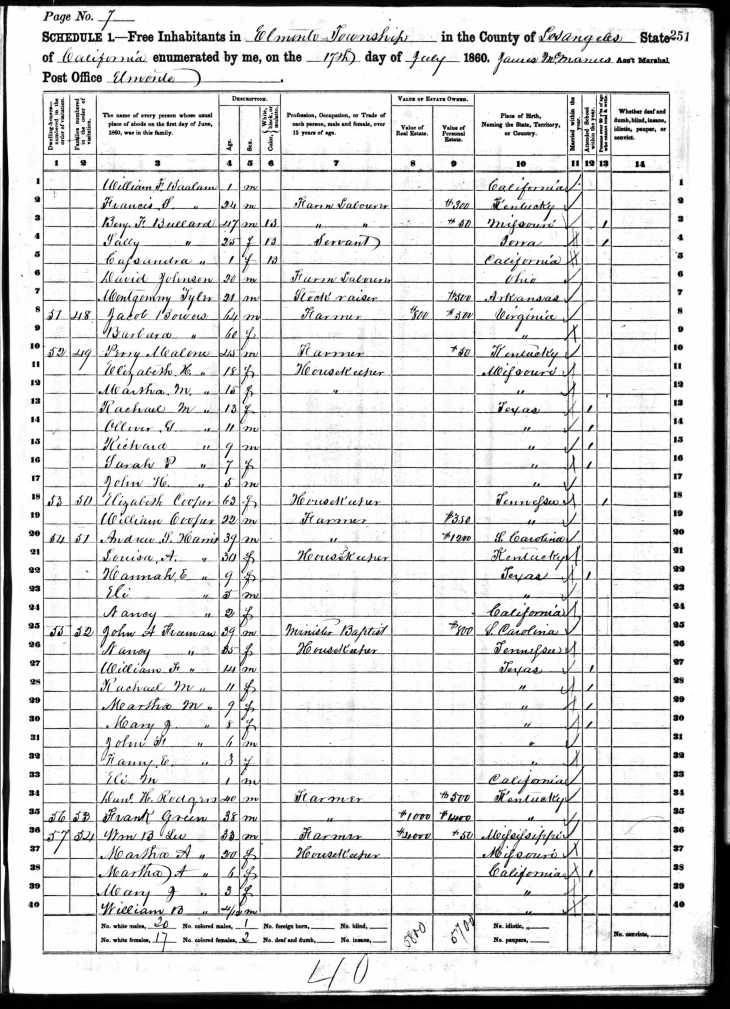 Page No. 7
SCHEDULE 1.—Free Inhabitants in Elmonte Township in the County of Los Angeles State 251
of California enumerated by me, on the 17th day of July 1860. James McManus Ass't Marshal.
Post Office Elmonte
Dwelling-houses—numbered in the order of visitation.
Families numbered in the order of visitation.
The name of every person whose usual place of abode on the first day of June, 1860, was in this family.
DESCRIPTION.
Age.
Sex.
Color, White, black, or mulatto.
Profession, Occupation, or Trade of each person, male and female, over 15 years of age.
VALUE OF ESTATE OWNED.
Value of Real Estate.
Value of Personal Estate.
Place of Birth, Naming the State, Territory, or Country.
Married within the year.
Attended School within the year.
Whether deaf and dumb, blind, insane, idiotic, pauper, or convict.
1 2 3 4 5 6 7 8 9 10 11 12 13 14
1 William F 1 m California 1
2 Francis S " 24 m Farm Labourer $300 Kentucky 2
3 Benj. F Bullard 47 m B " " $50 Missouri 1 3
4 Sally " 25 f B Servant 1 4
5 Cassandra " 1 f B California 5
6 David Johnson 20 m Farm Labourer Ohio 6
7 Montgomery Tyler 21 m Stock raiser $500 Arkansas 7
8 51 48 Jacob Bowers 64 m Farmer $800 $500 Virginia 8
9 Barbara " 60 f " 9
10 52 49 Perry Malone 45 m Farmer $50 Kentucky 10
11 Elizabeth H. " 18 f House Keeper Missouri 11
12 Martha M. " 15 f " " 12
13 Rachael M " 13 f Texas 1 13
14 Olliver G " 11 m " 1 14
15 Richard " 9 m " 1 15
16 Sarah P " 7 f " 1 16
17 John H. " 5 m " 17
18 53 50 Elizabeth Cooper 63 f House Keeper Tennessee 1 18
19 William Cooper 22 m Farmer $350 " 19
20 54 51 Andrew J. Harris 39 m " $1200 S. Carolina 20
21 Louisa A. " 30 f House Keeper Kentucky 21
22 Hannah E " 9 f Texas 1 22
23 Eli " 5 m " 23
24 Nancy " 2 f California 24
25 55 52 John A Freeman 39 m Minister Baptist $800 S. Carolina 25
26 Nancy " 35 f House Keeper Tennessee 26
27 William F " 14 m Texas 1 27
28 Rachael M " 11 f " 1 28
29 Martha M " 9 f " 1 29
30 Mary J. " 8 f " 1 30
31 John F " 6 m " 31
32 Fanny E. " 3 f " 32
33 Eli M 1 m California 33
34 Danl. H. Rodgers 40 m Farmer $500 Kentucky 34
35 56 53 Frank Green 38 m " $1000 $1400 " 35
36 57 54 Wm B Lee 33 m Farmer $4000 $50 Mississippi 36
37 Martha A " 20 f House Keeper Missouri 37
38 Martha A " 6 f California 1 38
39 Mary J " 3 f " 39
40 William B " 4/12 m " 40
No. white males, 20 No. colored males, 1 No. foreign born, No. blind, 5800 5700 No. idiotic, No. convicts,
No. white females, 17 No. colored females, 2 No. deaf and dumb, No. insane, No. paupers,
40